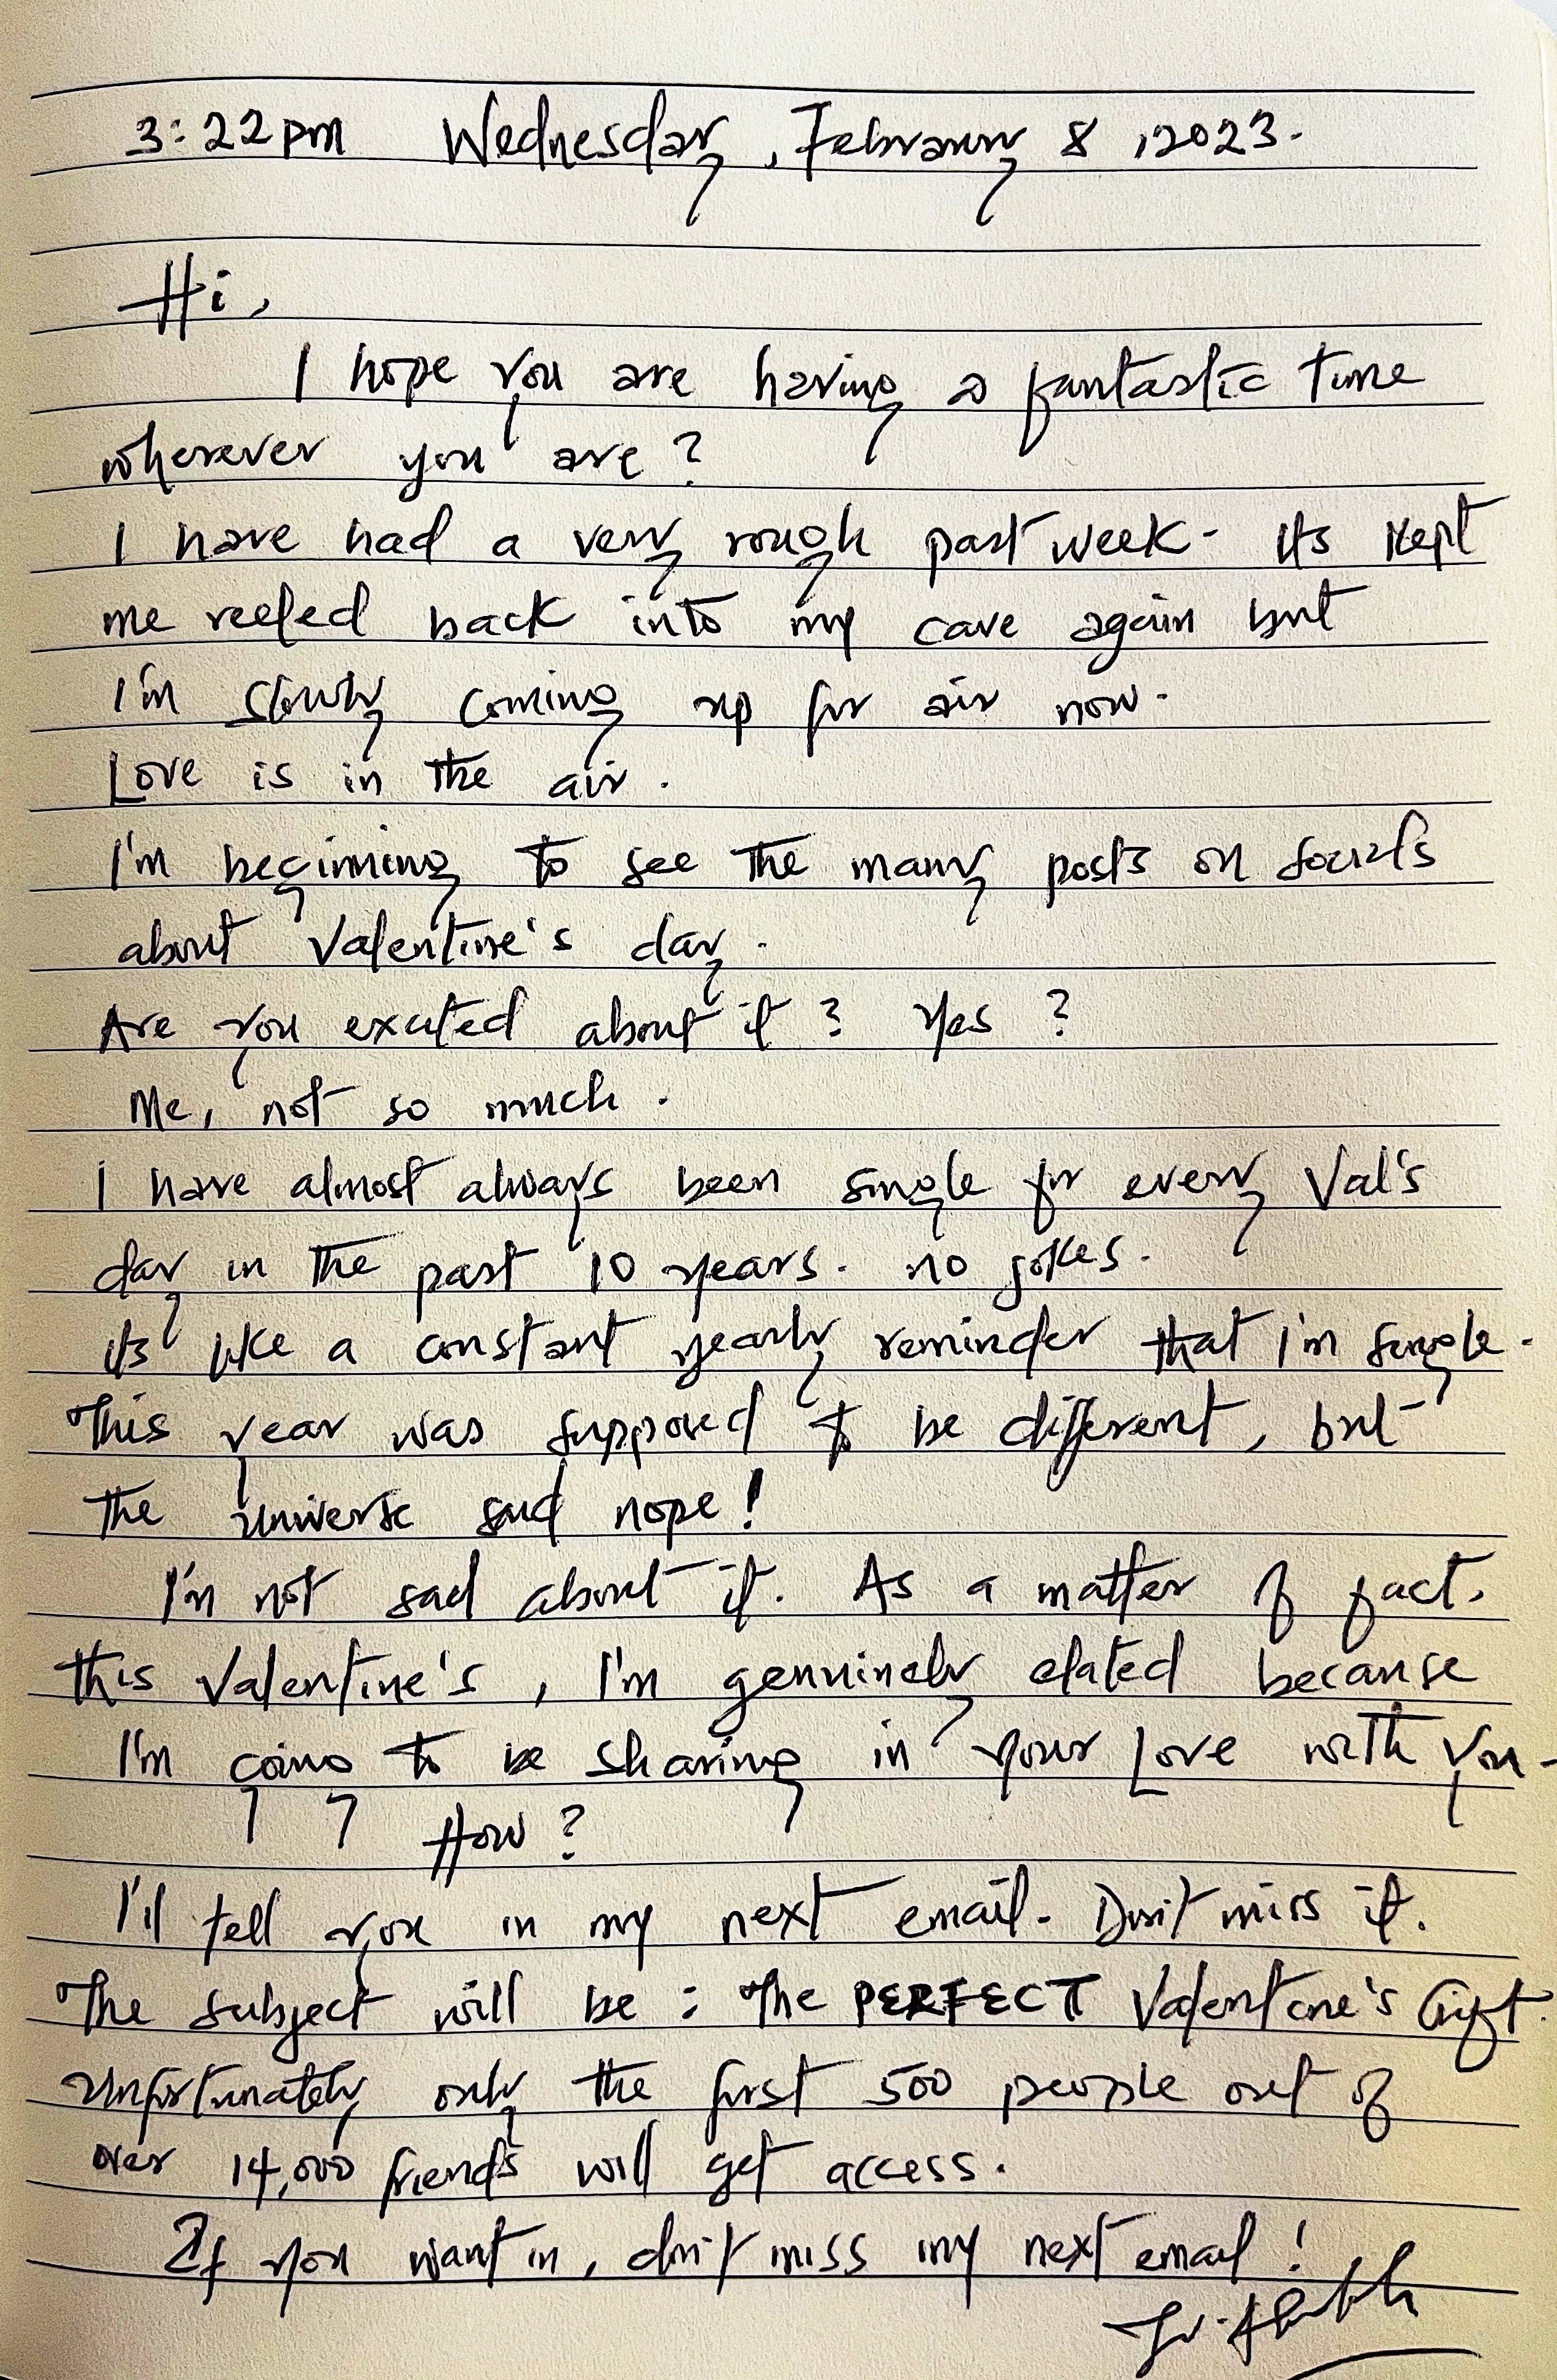 3:22pm Wednesday, February 8, 2023.
Hi,
I hope you are having a fantastic time
wherever you are?
I have had a very rough past week. Its kept
me reeled back into my cave again but
I'm slowly coming up for air now.
Love is in the air.
I'm beginning to see the many posts on socials
about Valentine's day.
Are you excited about it? Yes?
Me, not so much.
I have almost always been single for every Val's
day in the past 10 years. no jokes.
its like a constant yearly reminder that I'm single.
This year was supposed to be different, but
the universe said nope!
I'm not sad about it. As a matter of fact,
this Valentine's, I'm genuinely elated because
I'm going to be sharing in your Love with you.
How?
I'll tell you in my next email. Don't miss it.
The subject will be: The PERFECT Valentine's Gift.
Unfortunately only the first 500 people out of
over 14,000 friends will get access.
If you want in, don't miss my next email!